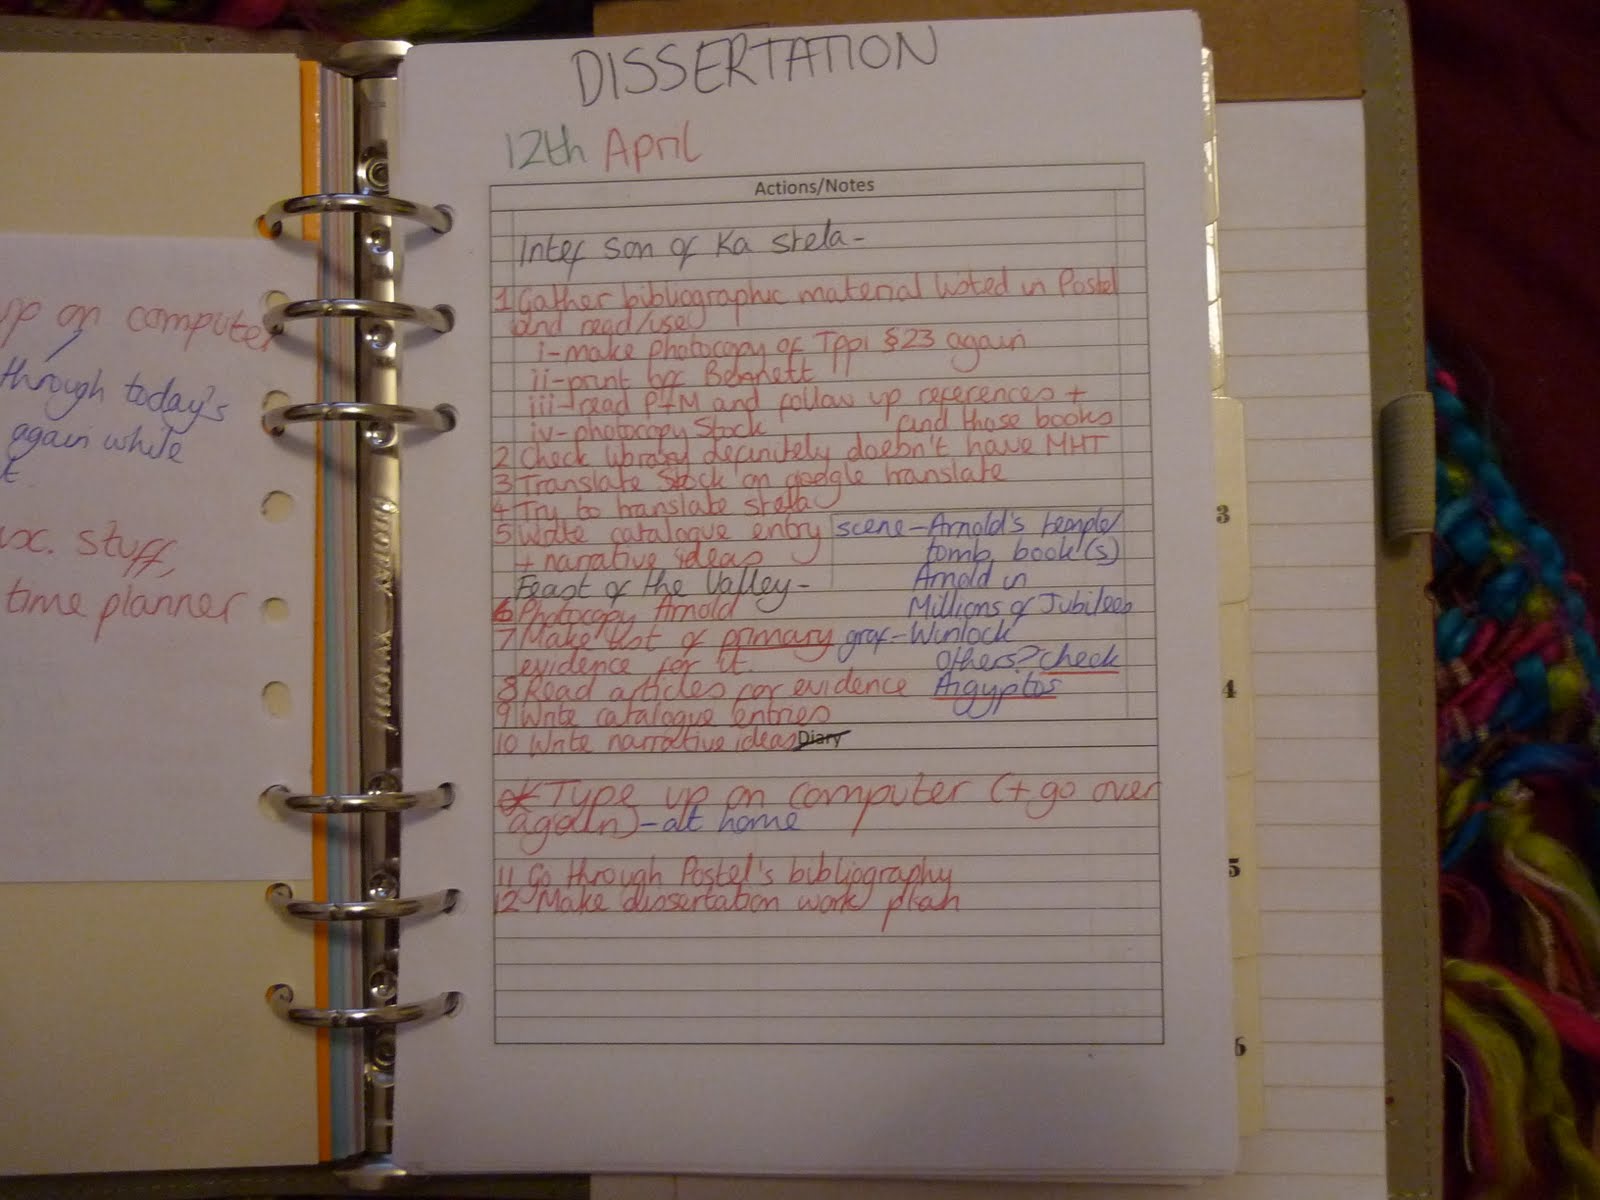 up on computer
through today's
again while
stuff,
time planner
DISSERTATION
12th April
Actions/Notes
Intef son of Ka stela-
1 Gather bibliographic material listed in Postel
and read/use
i-make photocopy of Tppi §23 again
ii-print off Bennett
iii-read P+M and follow up references +
find those books
iv-photocopy Stock
2 Check library definitely doesn't have MHT
3 Translate Stock on google translate
4 Try to translate stela
5 Write catalogue entry
+ narrative ideas
scene-Arnold's temple/
tomb book(s)
Arnold in
Millions of Jubilees
graf-Winlock
others? check
Ägyptos
Feast of the Valley-
6 Photocopy Arnold
7 Make list of primary
evidence for it.
8 Read articles for evidence
9 Write catalogue entries
10 Write narrative ideas
Diary
* Type up on computer (+ go over
again)-at home
11 Go through Postel's bibliography
12 Make dissertation work plan
3
4
5
6